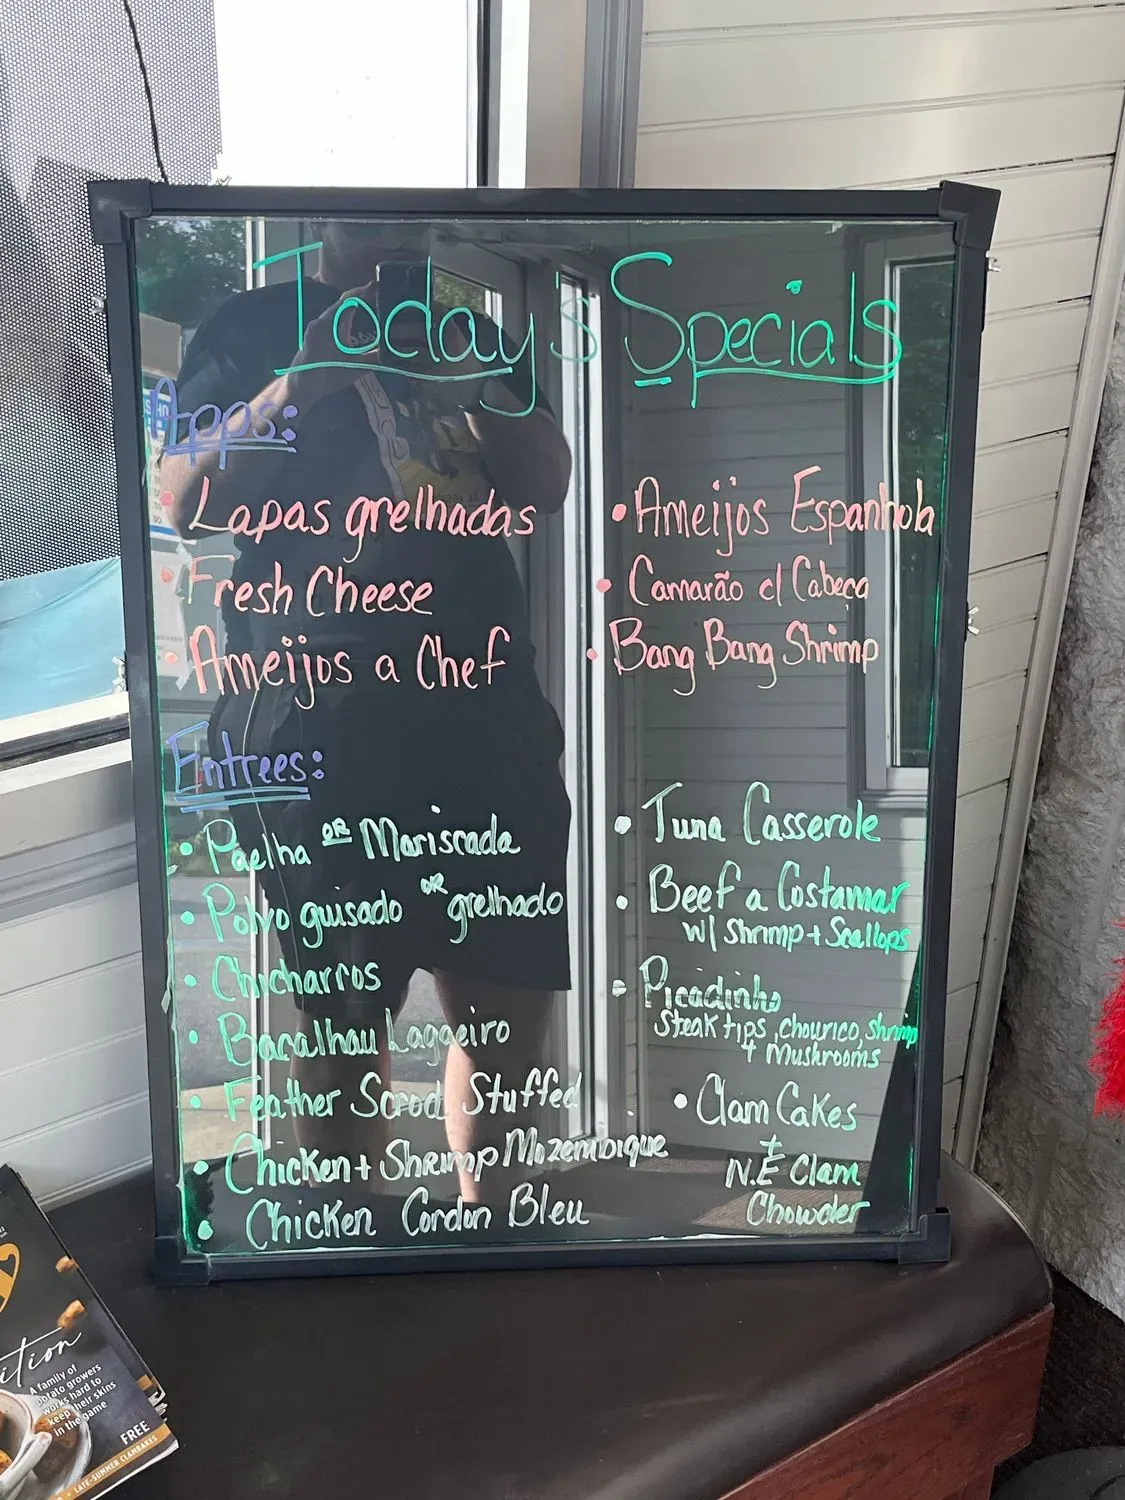 Today's Specials
Apps:
• Lapas grelhadas
• Fresh Cheese
• Ameijos a Chef
• Ameijos Espanhola
• Camarão c/ Cabeça
• Bang Bang Shrimp
Entrees:
• Paelha OR Mariscada
• Polvo guisado OR grelhado
• Chicharros
• Bacalhau Lagaeiro
• Feather Scrod Stuffed
• Chicken + Shrimp Mozembique
• Chicken Cordon Bleu
• Tuna Casserole
• Beef a Costamar
w/ Shrimp + Scallops
• Picadinho
Steak tips, chourico, shrimp
+ Mushrooms
• Clam Cakes
+
N.E Clam
Chowder
A family of
potato growers
works hard to
keep their skins
in the game
FREE
• LATE-SUMMER CLAMBAKES